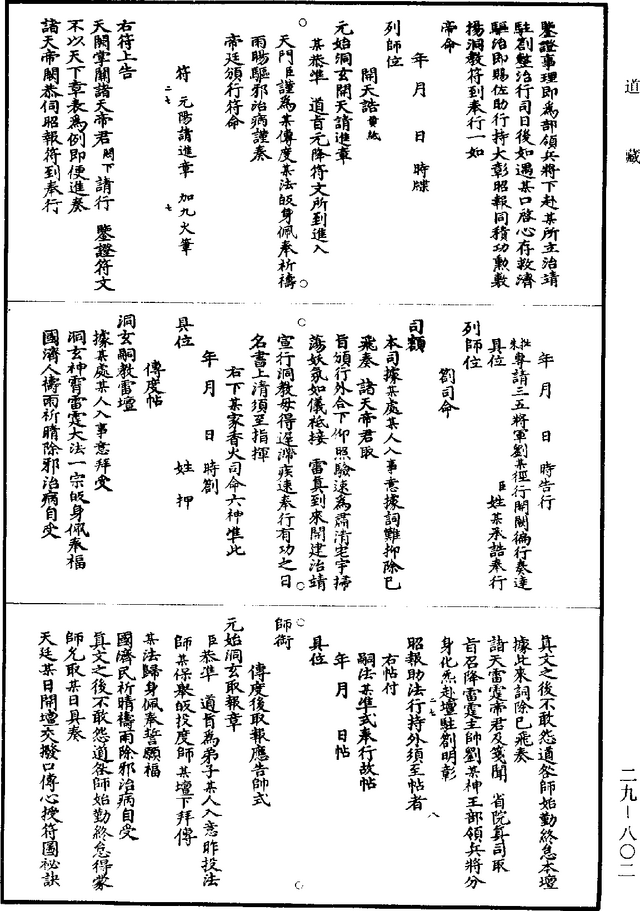 道藏
鑒證事理即為部領兵將下赴某所立治靖
駐劄整治行司日後如遇某口啓心存救濟
驅治即賜佐助行持大彰昭報同積功勳數
揚洞教符到奉行一如
帝命
年 月 日 時牒
列師位
開天誥黃紙
元始洞玄開天請進章
某恭準 道旨元降符文所到進入
天門臣謹為某傳度某法皈身佩奉祈禱
雨暘驅邪治病謹奏
帝廷頒行符命
符 元陽請進章 加九火筆
二七 七
右符上告
天閽掌關諸天帝君閤下請行 鑒證符文
不以天下章表為例即便進奏
諸天帝閽恭伺昭報符到奉行
年 月 日 時告行
尊請三五將軍劉某徑行開關徧行奏達
具位 臣姓某承誥奉行
列師位
劄司命
司額
本司據某處某人入事意據詞難抑除已
飛奏 諸天帝君取
旨頒行外合下仰照驗速為肅清宅宇掃
蕩妖氛如儀祗接 雷真到來開建治靖
宣行洞教毋得遲滯疾速奉行有功之日
名書上清須至指揮
右下某家香火司命六神準此
年 月 日 時劄
具位 姓 押
傳度帖
洞玄嗣教雷壇
據某處某人入事意拜受
洞玄神霄雷霆大法一宗皈身佩奉福
國濟人禱雨祈晴除邪治病自受
真文之後不敢怨道咎師始勤終怠本壇
據此來詞除已飛奏
諸天雷霆帝君及箋聞 省院真司取
旨召降雷霆主帥劉某神王部領兵將分
身化炁赴壇駐劄明彰
二七 八
昭報助法行持外須至帖者
右帖付
嗣法某準式奉行故帖
年 月 日帖
具位
傳度後取報應告帥式
師銜
元始洞玄取報章
臣恭準 道旨為弟子某人入意昨投法
師某保舉皈投度師某壇下拜傳
某法歸身佩奉誓願福
國濟民祈晴禱雨除邪治病自受
真文之後不敢怨道咎師始勤終怠得蒙
師允取某日具奏
天廷某日開壇交撥口傳心授符圖祕訣
二九－八〇二